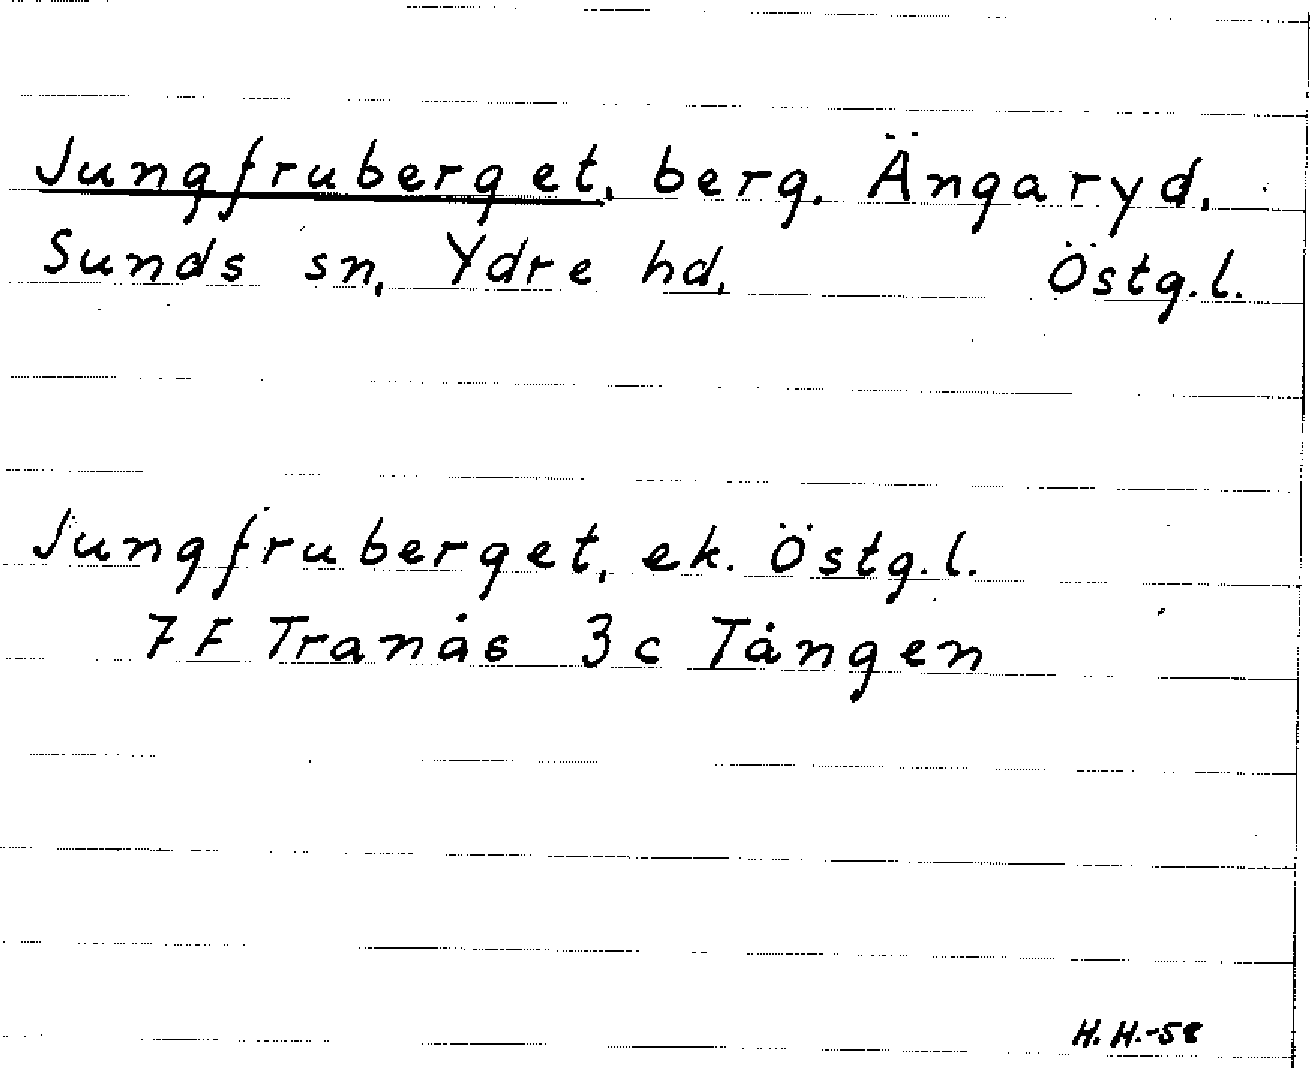 Jungfruberget, berg. Ängaryd,
Sunds sn, Ydre hd, Östg.l.
Jungfruberget, ek. Östg.l.
7F Tranås 3c Tången
H.H.-58